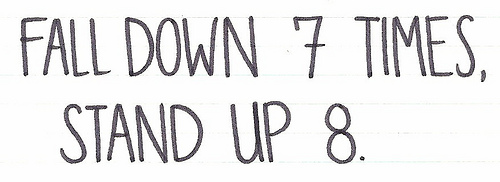 FALL DOWN 7 TIMES,
STAND UP 8.